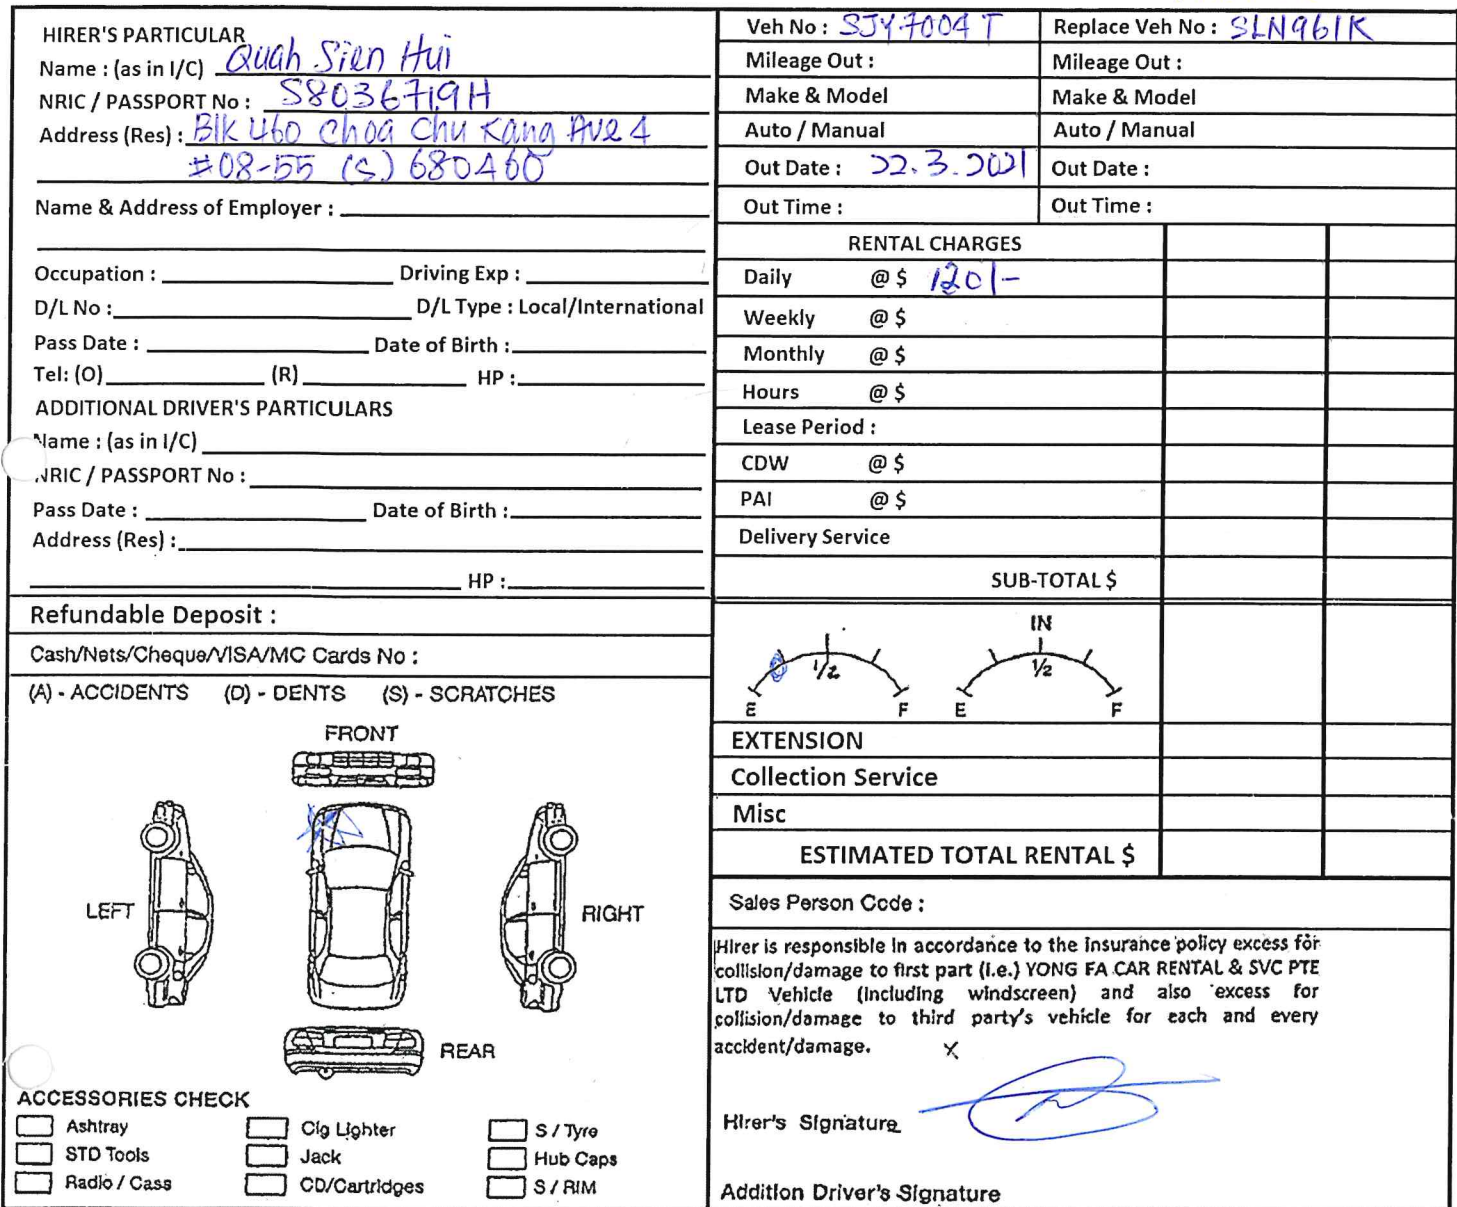 HIRER'S PARTICULAR
Name : (as in I/C) Quah Sien Hui
NRIC / PASSPORT No : S8036719H
Address (Res) : Blk 460 Choa Chu Kang Ave 4
#08-55 (S) 680460
Name & Address of Employer :
Occupation : Driving Exp :
D/L No : D/L Type : Local/International
Pass Date : Date of Birth :
Tel: (O) (R) HP :
ADDITIONAL DRIVER'S PARTICULARS
Name : (as in I/C)
NRIC / PASSPORT No :
Pass Date : Date of Birth :
Address (Res) :
HP :
Refundable Deposit :
Cash/Nets/Cheque/VISA/MC Cards No :
(A) - ACCIDENTS (D) - DENTS (S) - SCRATCHES
FRONT
LEFT
RIGHT
REAR
ACCESSORIES CHECK
Ashtray Cig Lighter S / Tyre
STD Tools Jack Hub Caps
Radio / Cass CD/Cartridges S / RIM
Veh No : SJY7004T Replace Veh No : SLN961K
Mileage Out : Mileage Out :
Make & Model Make & Model
Auto / Manual Auto / Manual
Out Date : 22.3.2021 Out Date :
Out Time : Out Time :
RENTAL CHARGES
Daily @ $ 120/-
Weekly @ $
Monthly @ $
Hours @ $
Lease Period :
CDW @ $
PAI @ $
Delivery Service
SUB-TOTAL $
IN
1/2 1/2
E F E F
EXTENSION
Collection Service
Misc
ESTIMATED TOTAL RENTAL $
Sales Person Code :
Hirer is responsible in accordance to the insurance policy excess for
collision/damage to first part (i.e.) YONG FA CAR RENTAL & SVC PTE
LTD Vehicle (including windscreen) and also excess for
collision/damage to third party's vehicle for each and every
accident/damage. X
Hirer's Signature
Addition Driver's Signature